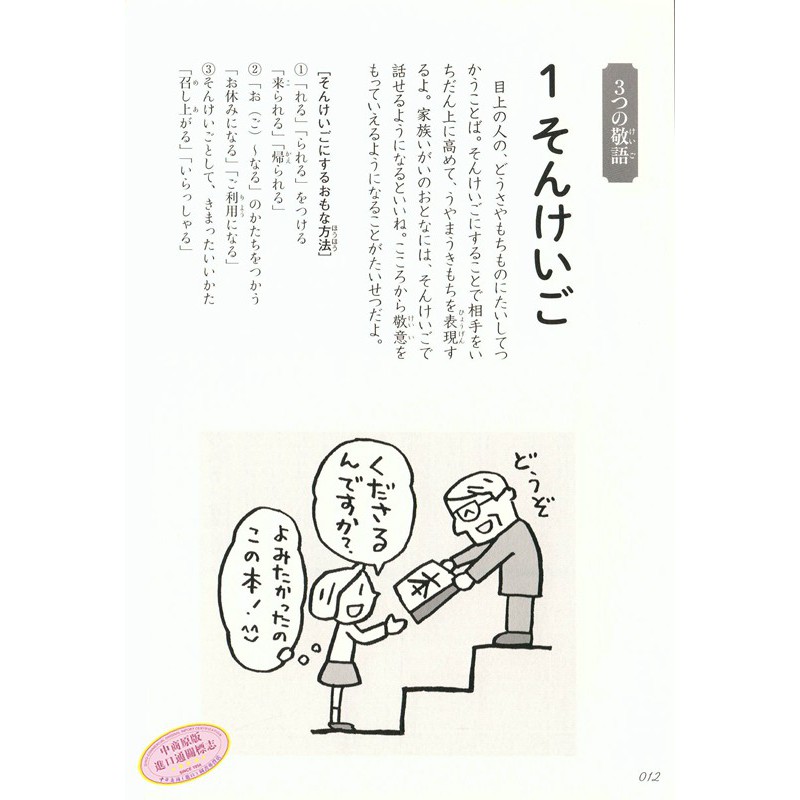 3つの敬語
けいご
1 そんけいご
目上の人の、どうさやもちものにたいしてつ
かうことば。そんけいごにすることで相手をい
ちだん上に高めて、うやまうきもちを表現す
ひょうげん
るよ。家族いがいのおとなには、そんけいごで
話せるようになるといいね。こころから敬意を
けいい
もっていえるようになることがたいせつだよ。
[そんけいごにするおもな方法]
ほうほう
①「れる」「られる」をつける
「来られる」「帰られる」
こ かえ
②「お（ご）〜なる」のかたちをつかう
「お休みになる」「ご利用になる」
りよう
③そんけいごとして、きまったいいかた
「召し上がる」「いらっしゃる」
め あ
どうぞ
本
くださる
んですか？
よみたかったの
この本！
中商原版
進口通關標志
SINCE 1988
012